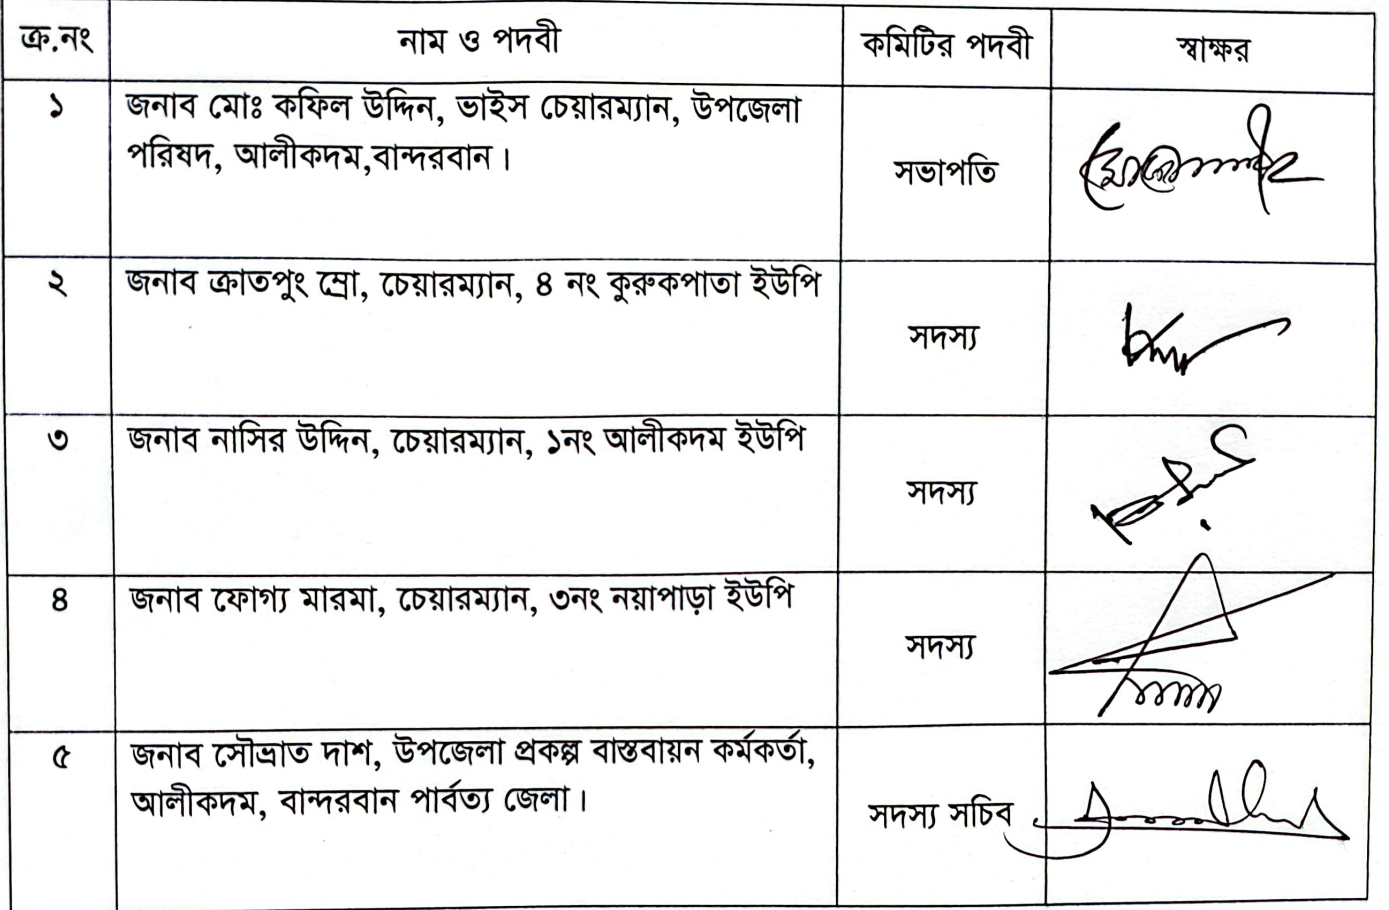 ক্র.নং নাম ও পদবী কমিটির পদবী স্বাক্ষর
১ জনাব মোঃ কফিল উদ্দিন, ভাইস চেয়ারম্যান, উপজেলা
পরিষদ, আলীকদম,বান্দরবান।
সভাপতি
২ জনাব ক্রাতপুং ম্রো, চেয়ারম্যান, ৪ নং কুরুকপাতা ইউপি
সদস্য
৩ জনাব নাসির উদ্দিন, চেয়ারম্যান, ১নং আলীকদম ইউপি
সদস্য
৪ জনাব ফোগ্য মারমা, চেয়ারম্যান, ৩নং নয়াপাড়া ইউপি
সদস্য
৫ জনাব সৌভ্রাত দাশ, উপজেলা প্রকল্প বাস্তবায়ন কর্মকর্তা,
আলীকদম, বান্দরবান পার্বত্য জেলা।
সদস্য সচিব